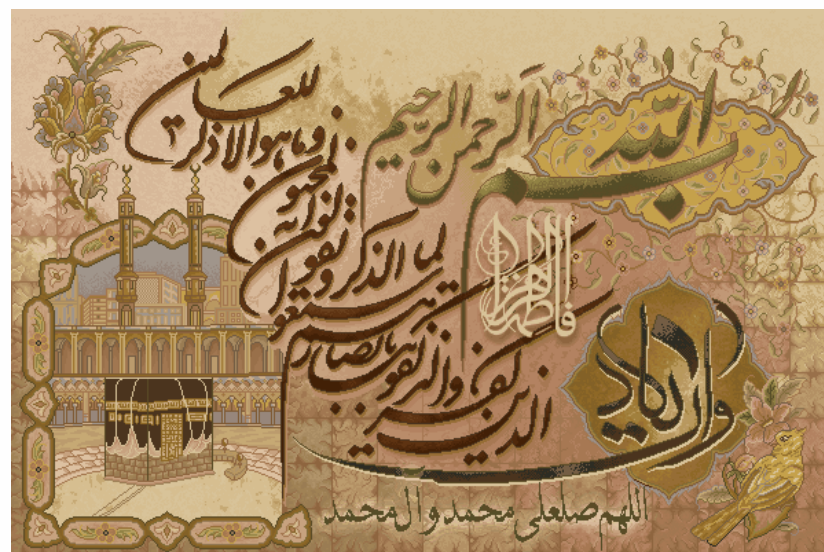 بسم الله الرَّحمن الرَّحيم
وان يكاد
الذين كفروا ليزلقونك بابصارهم
لما سمعوا الذكر و يقولون انه لمجنون
وما هو الا ذكر
للعالمين
فاطمة الزهراء
اللهم صلعلى محمد و ال محمد